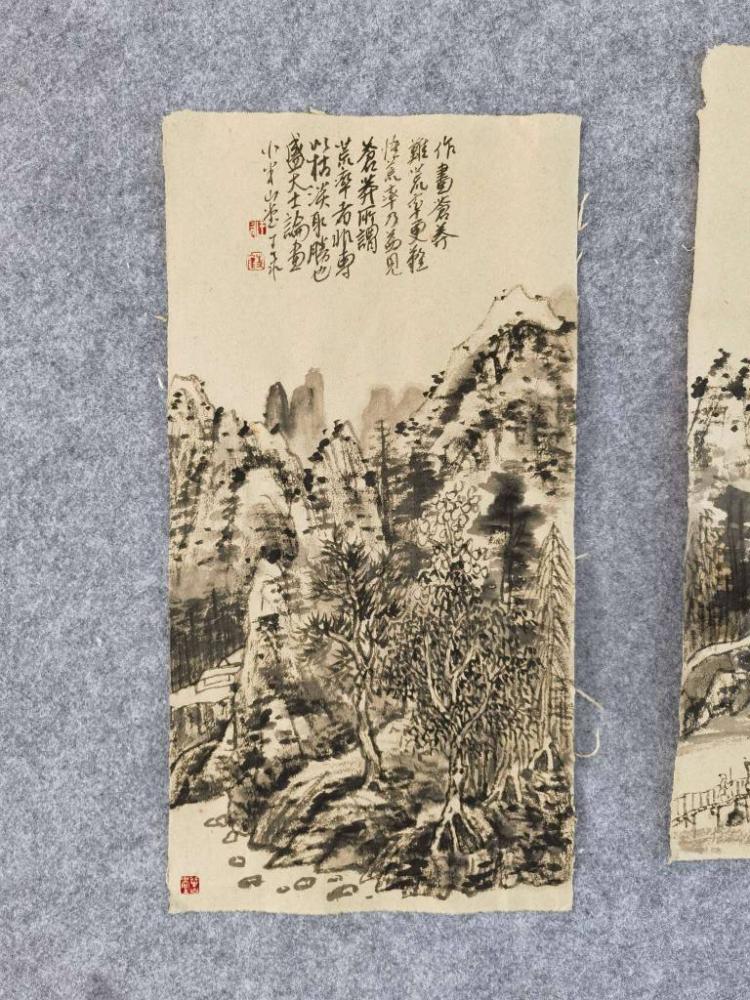 作畫蒼莽
難荒率更難
惟荒率乃益見
蒼莽所謂
荒率者非專
以枯淡取勝也
盛大士論畫
小米山